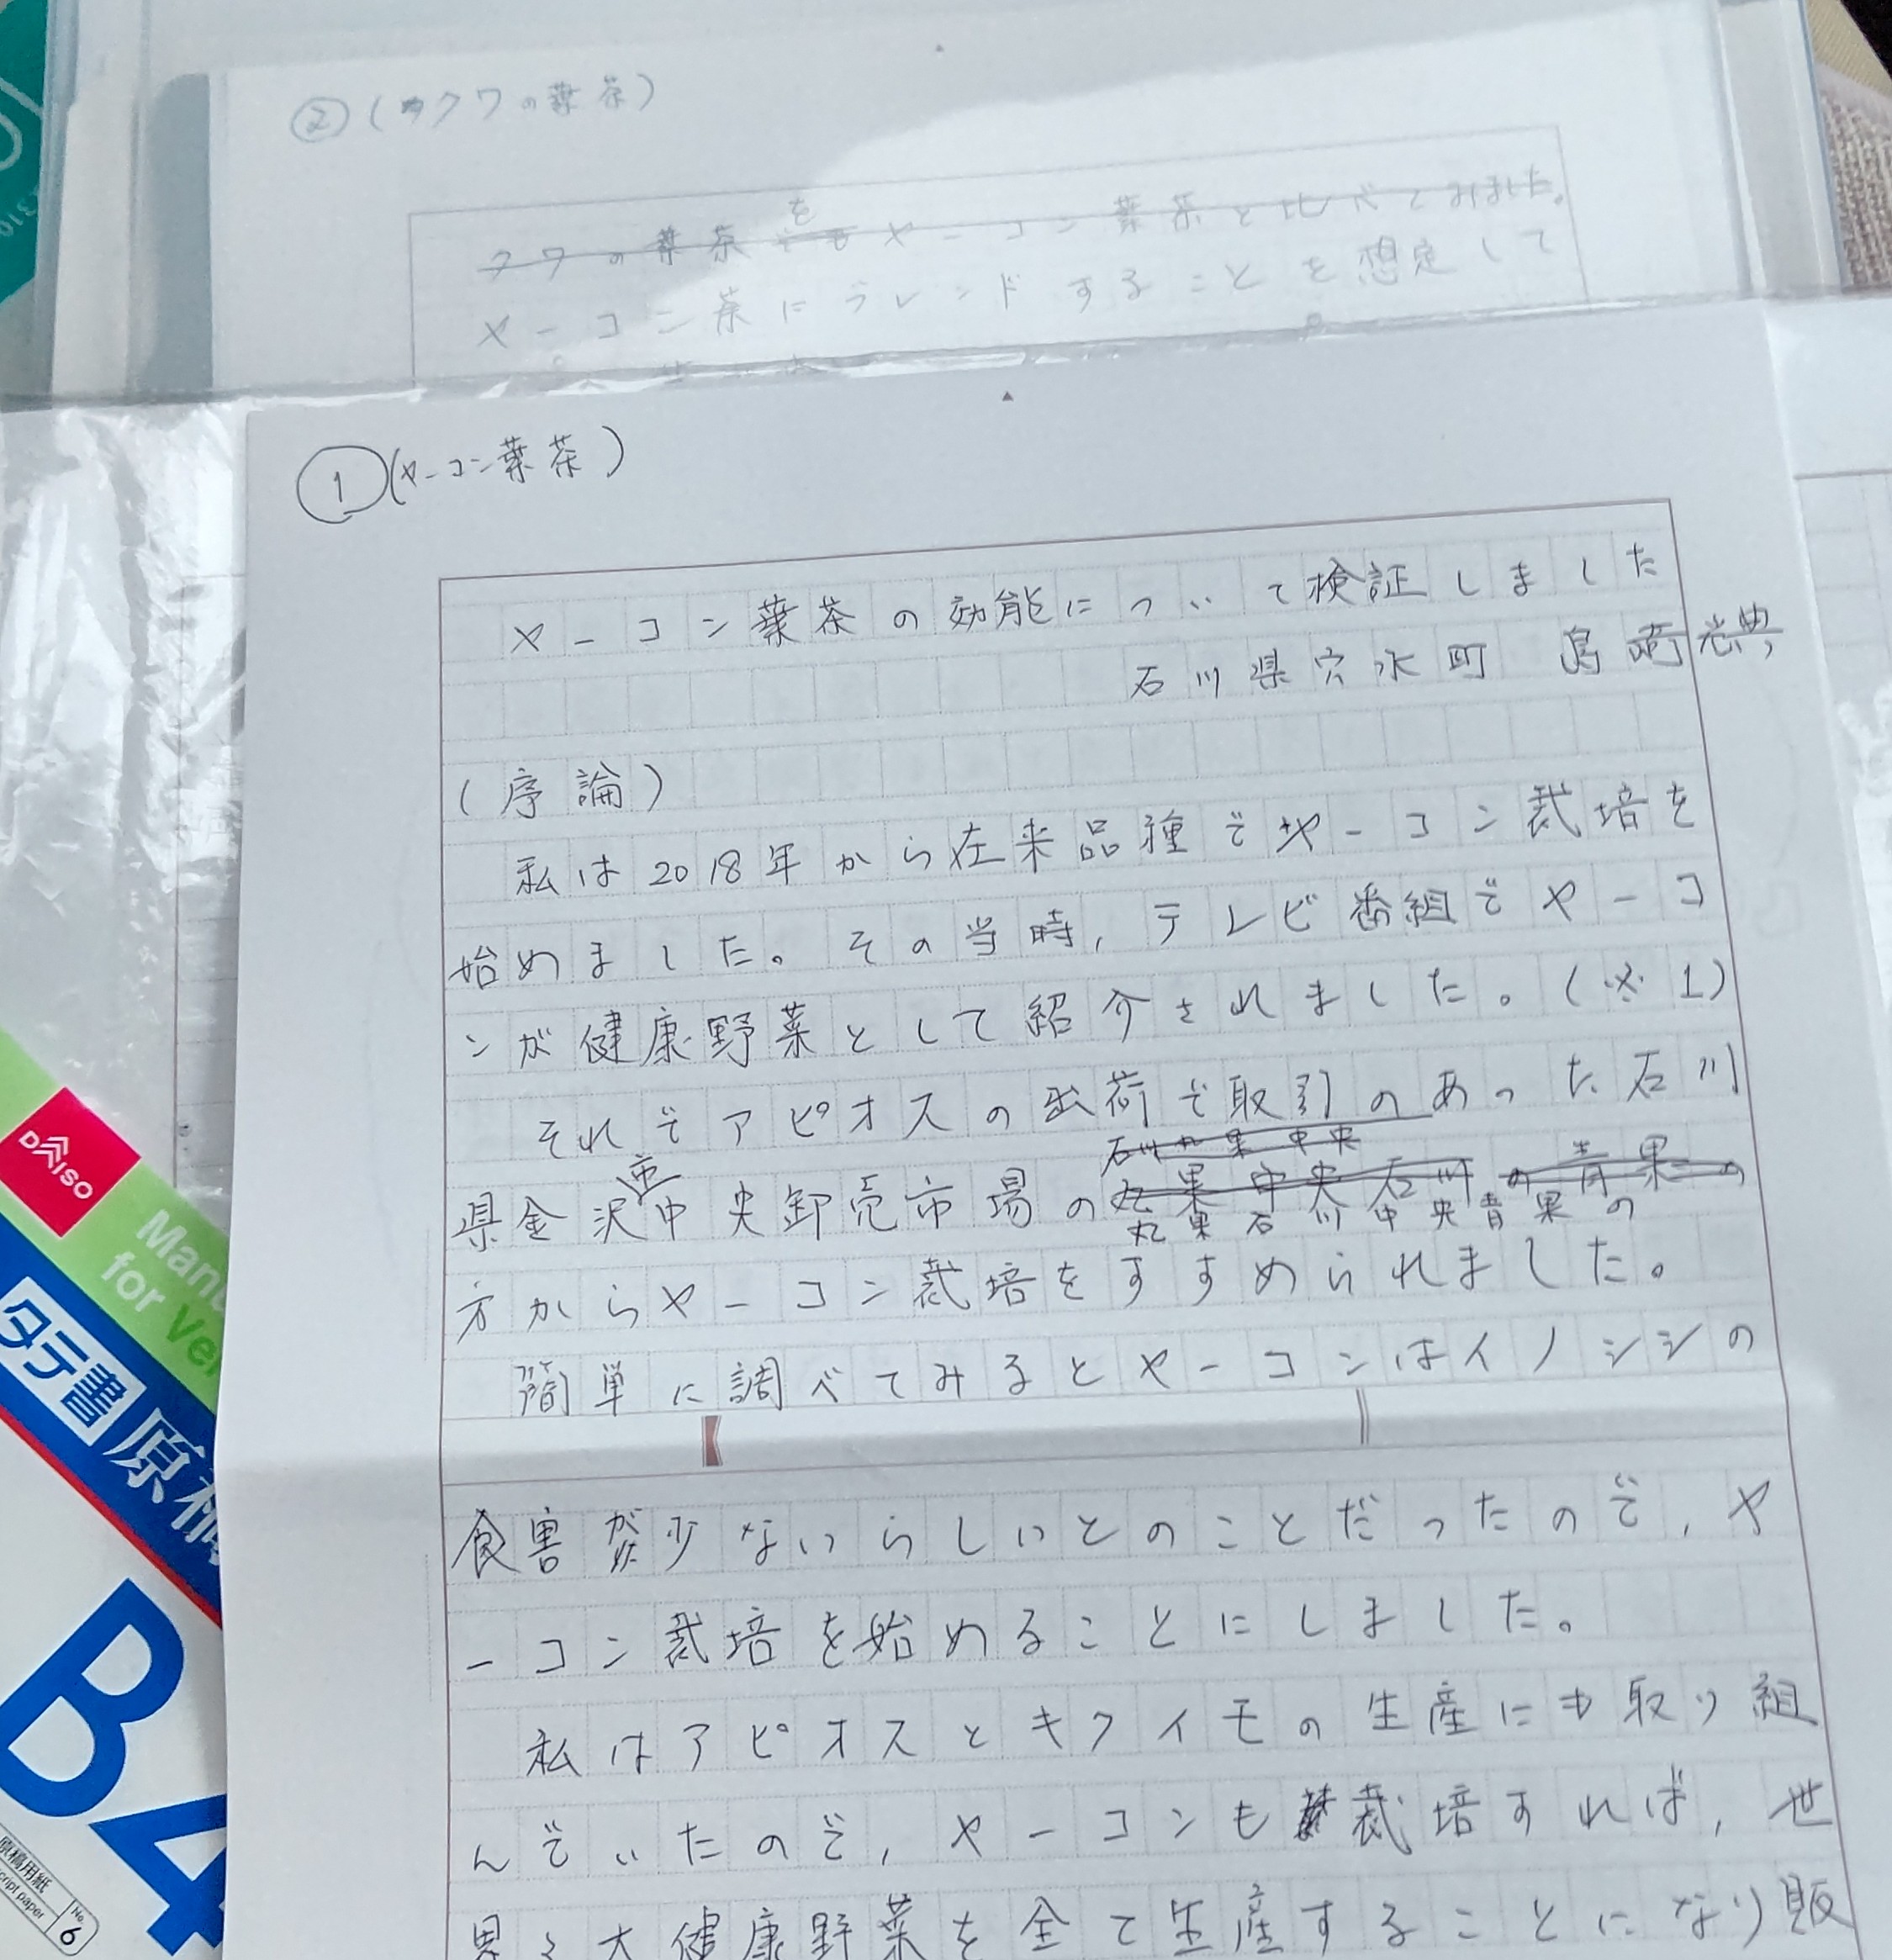 ②(クワの葉茶)
クワの葉茶をヤーコン葉茶と比べてみました。
ヤーコン茶にブレンドすることを想定して
①(ヤーコン葉茶)
ヤーコン葉茶の効能について検証しました
石川県穴水町 島崎光典
(序論)
私は2018年から在来品種でヤーコン栽培を
始めました。その当時,テレビ番組でヤーコ
ンが健康野菜として紹介されました。(※1)
それでアピオスの出荷で取引のあった石川
県金沢市中央卸売市場の丸果石川中央青果の
方からヤーコン栽培をすすめられました。
簡単に調べてみるとヤーコンはイノシシの
食害が少ないらしいとのことだったので,ヤ
ーコン栽培を始めることにしました。
私はアピオスとキクイモの生産にも取り組
んでいたので,ヤーコンも栽培すれば,世
界三大健康野菜を全て生産することになり販
DAISO
Manu
for Ver
タテ書
原稿
B4
原稿用紙
script paper
No.
6
310